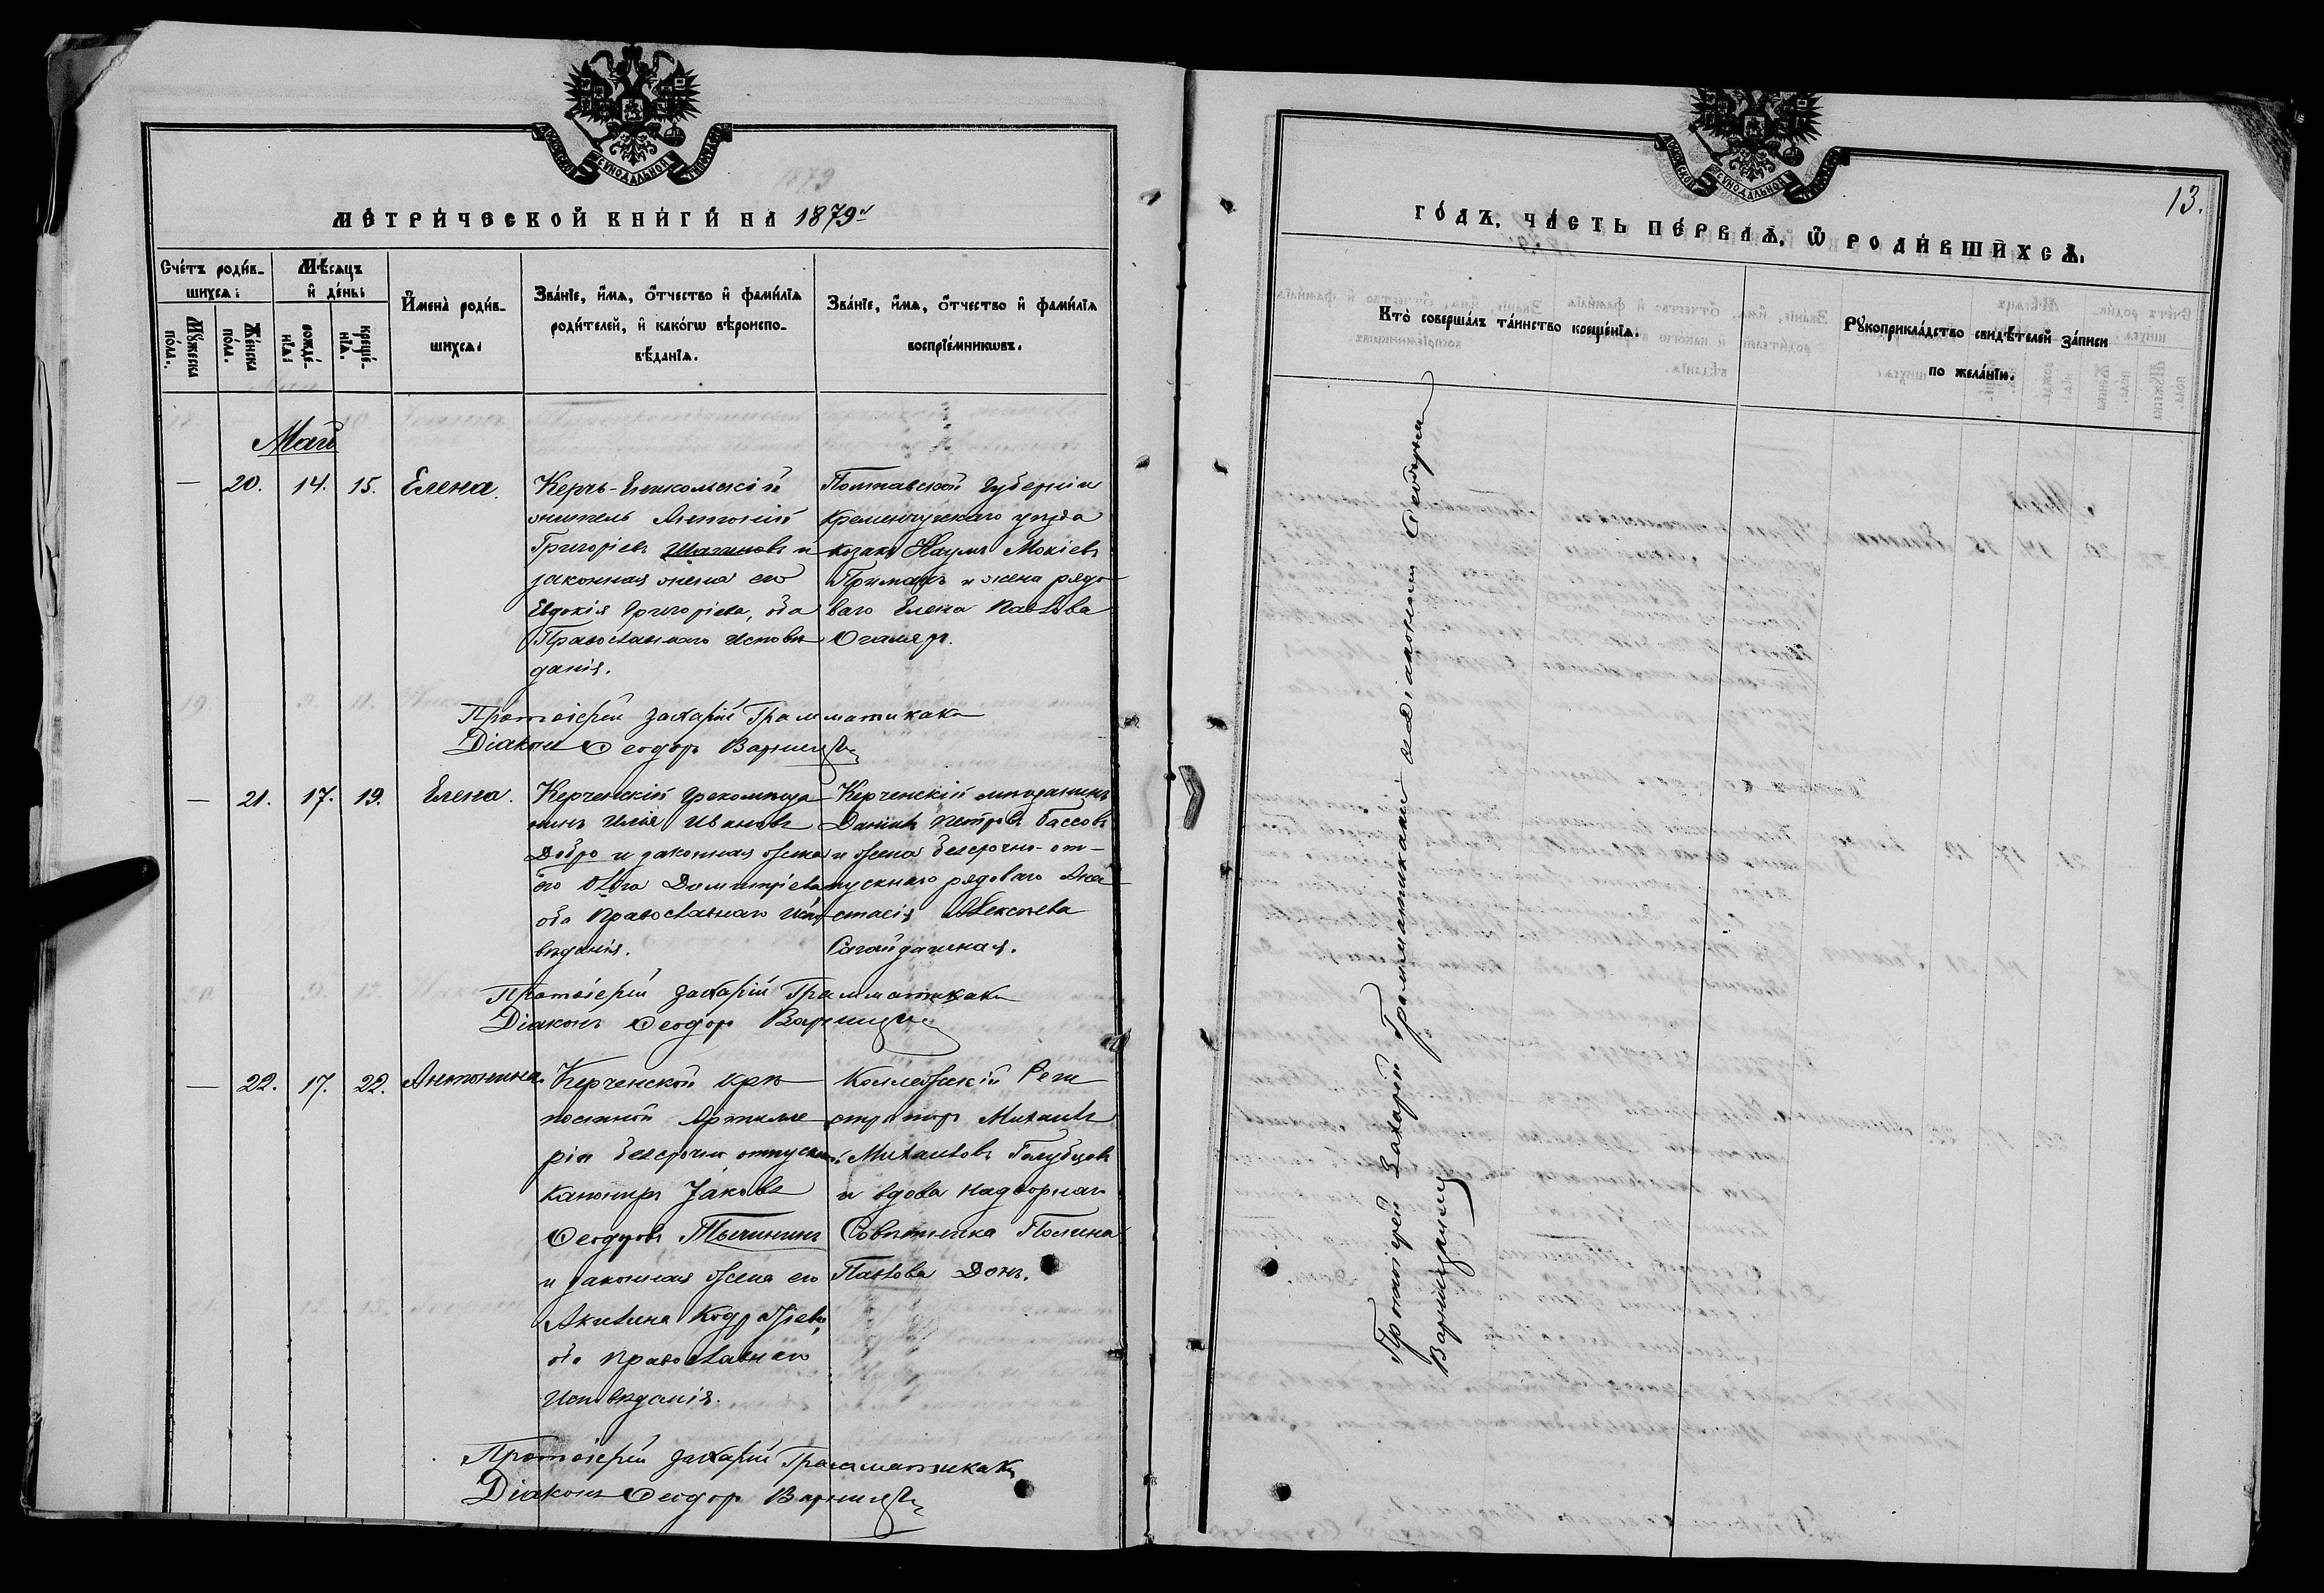 МЕТРИЧЕСКОЙ КНИГИ НА 1879 г
Счетъ родив-
шихся:
Мужеска
пола.
Женска
пола.
Мѣсяцъ
и день:
рожде-
нія:
креще-
нія.
Имена родив-
шихся:
Званіе, имя, отчество и фамилія
родителей, и какогω вѣроиспо-
вѣданія.
Званіе, имя, отчество и фамилія
воспріемникωвъ.
Май
— 20. 14. 15. Елена.
Керчь-Еникольскій
житель Антоній
Григоріевъ и
законная жена его
Евдокія Григоріева, оба
Православнаго исповѣ
данія.
Полтавской Губерніи
Кременчугскаго уѣзда
козакъ Наумъ Мокіевъ
и жена рядо-
ваго Елена Павлова
Протоіерей Захарій Грамматикаки
Діаконъ Ѳеодоръ
— 21. 17. 19. Елена.
Керченскій Грекомѣща
нинъ Илья Ивановъ
Добро и законная жена
его Ольга Димитріева
оба Православнаго испо
вѣданія.
Керченскій мѣщанинъ
Даніилъ Петровъ Бассовъ
и жена безсрочно-от-
пускнаго рядоваго Ана
стасія Алексѣева
Сагайдачная.
Протоіерей Захарій Грамматикаки
Діаконъ Ѳеодоръ
— 22. 17. 22. Антонина.
Керченской крѣ
постной Артилле
ріи безсрочно отпускн:
Канониръ Іаковъ
Ѳеодоровъ Тычининъ
и законная жена его
Акилина
оба Православнаго
Исповѣданія.
Коллежскій Реги
страторъ Михаилъ
Михаиловъ Голубцевъ
и вдова надворнаго
Совѣтника Полина
Павлова Донъ.
Протоіерей Захарій Грамматикаки
Діаконъ Ѳеодоръ
13.
ГОДЪ, ЧАСТЬ ПЕРВАЯ, Ѿ РОДИВШИХСЯ.
Кто совершалъ таинство крещенія.
Рукоприкладство свидѣтелей записи
по желанію.
Протоіерей Захарій Грамматикаки и Діакономъ Ѳеодоромъ